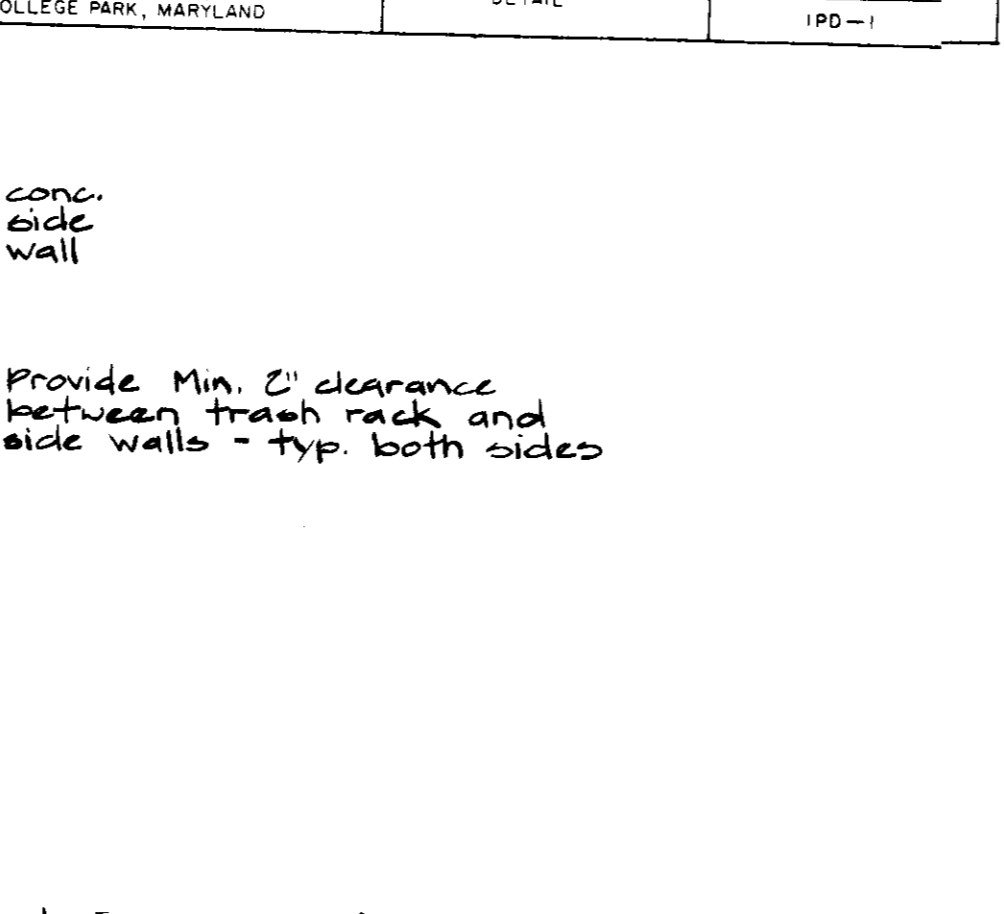 OLLEGE PARK, MARYLAND
DETAIL
IPD-1
conc.
side
wall
Provide Min. 2" clearance
between trash rack and
side walls - typ. both sides